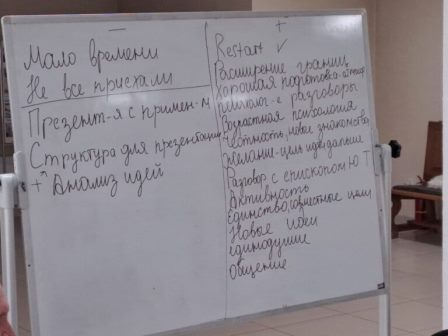 —
Мало времени
Не все приехали
Презент-я с примен-м
Структура для презентации
+ Анализ идей
+
Restart ✓
Расширение границ
Хорошая подготовка
психолог-е разговоры
Возрастная психология
Честность, новые знакомства
Желание-цель идти дальше
Разговор с епископом Ю Т
Активность
Единство, совместные цели
Новые идеи
единодушие
общение